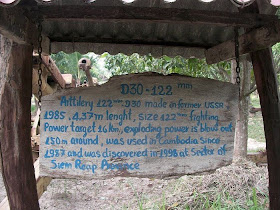 D30-122 mm
Artillery 122 mm D30 made in former USSR
1985, 4.37m lenght, size 122 mm fighting
Power target 16 km, exploding power is blow out
150m around, was used in Cambodia since
1987 and was discovered in 1998 at Sector of
Siem Reap Province